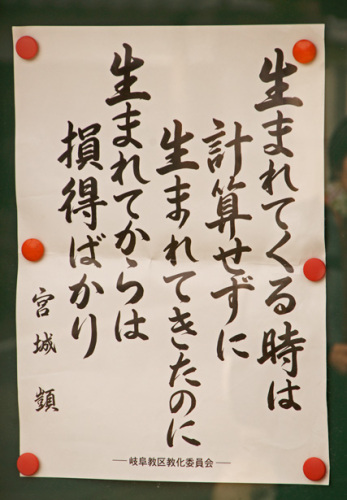 生まれてくる時は
計算せずに
生まれてきたのに
生まれてからは
損得ばかり
宮城 顗
─ 岐阜教区教化委員会 ─